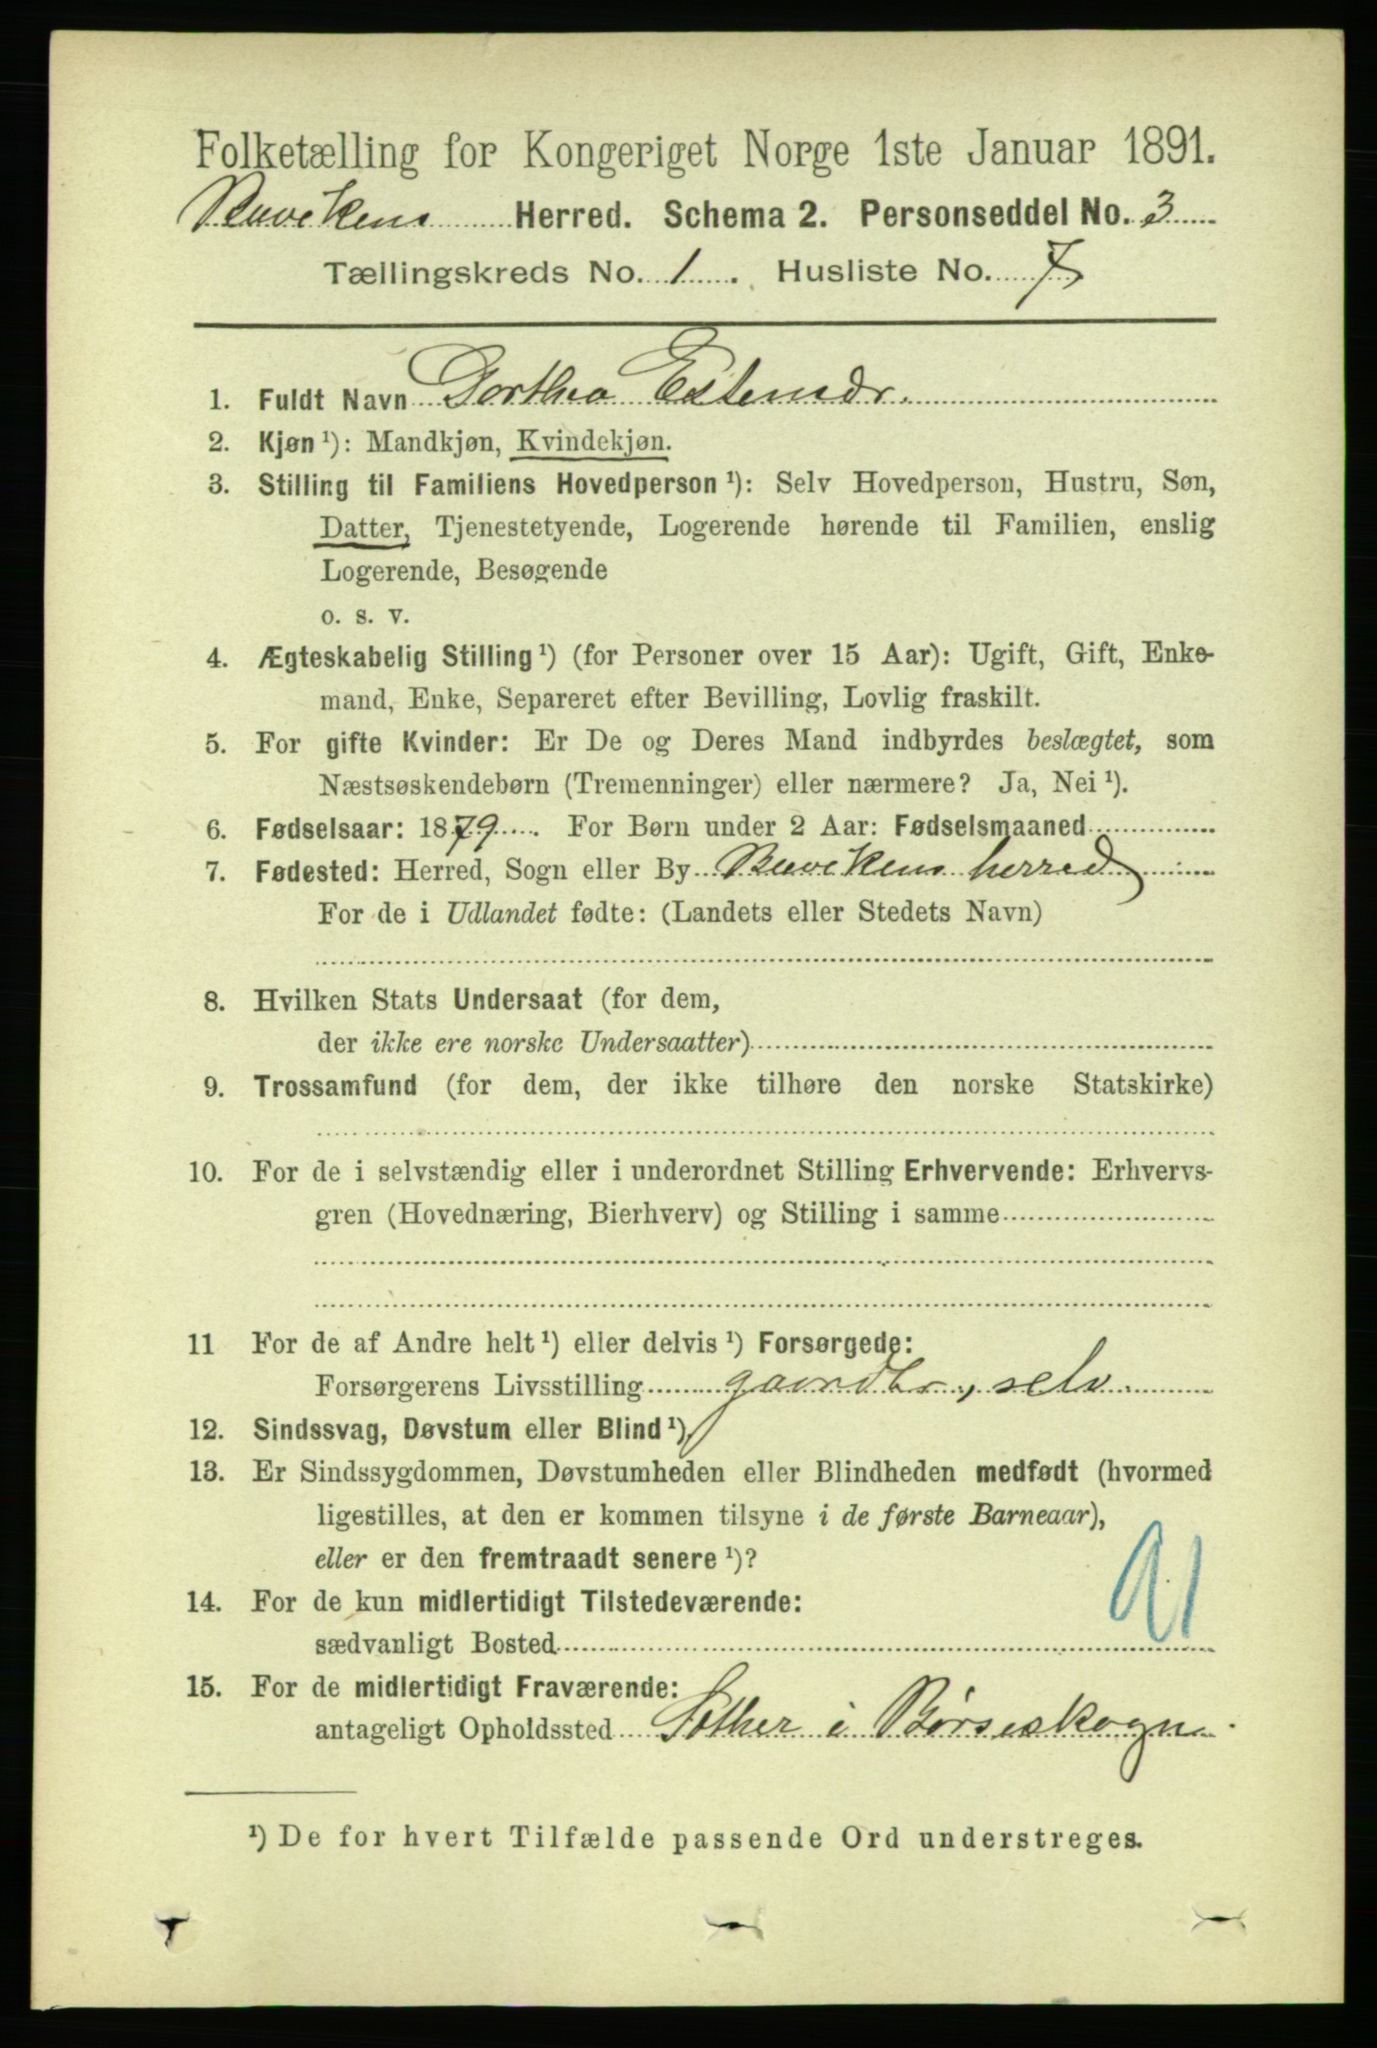 Folketælling for Kongeriget Norge 1ste Januar 1891.
Buvikens Herred. Schema 2. Personseddel No. 3
Tællingskreds No. 1. Husliste No. 7
1. Fuldt Navn Dorthea Estensdr.
2. Kjøn ¹): Mandkjøn, Kvindekjøn.
3. Stilling til Familiens Hovedperson ¹): Selv Hovedperson, Hustru, Søn,
Datter, Tjenestetyende, Logerende hørende til Familien, enslig
Logerende, Besøgende
o. s. v.
4. Ægteskabelig Stilling ¹) (for Personer over 15 Aar): Ugift, Gift, Enke-
mand, Enke, Separeret efter Bevilling, Lovlig fraskilt.
5. For gifte Kvinder: Er De og Deres Mand indbyrdes beslægtet, som
Næstsøskendebørn (Tremenninger) eller nærmere? Ja, Nei ¹).
6. Fødselsaar: 1879. For Børn under 2 Aar: Fødselsmaaned
7. Fødested: Herred, Sogn eller By Buvikens herred
For de i Udlandet fødte: (Landets eller Stedets Navn)
8. Hvilken Stats Undersaat (for dem,
der ikke ere norske Undersaatter)
9. Trossamfund (for dem, der ikke tilhøre den norske Statskirke)
10. For de i selvstændig eller i underordnet Stilling Erhvervende: Erhvervs-
gren (Hovednæring, Bierhverv) og Stilling i samme
11 For de af Andre helt ¹) eller delvis ¹) Forsørgede:
Forsørgerens Livsstilling gaardbr., selv.
12. Sindssvag, Døvstum eller Blind ¹).
13. Er Sindssygdommen, Døvstumheden eller Blindheden medfødt (hvormed
ligestilles, at den er kommen tilsyne i de første Barneaar),
eller er den fremtraadt senere ¹)?
91
14. For de kun midlertidigt Tilstedeværende:
sædvanligt Bosted
15. For de midlertidigt Fraværende:
antageligt Opholdssted i Børseskogn.
¹) De for hvert Tilfælde passende Ord understreges.